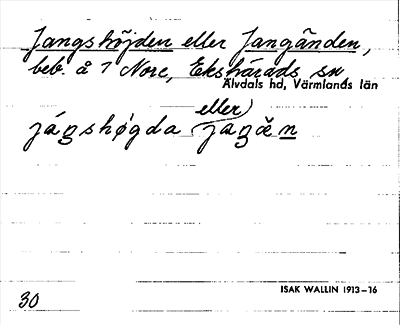 Jangshöjden eller Jangänden,
beb. å 7 Nore, Ekshärads sn
Älvdals hd, Värmlands län
eller
jáŋshøgda jaŋæ̃n
ISAK WALLIN 1913–16
30